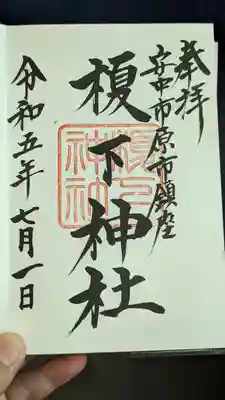 奉拝
安中市原市鎮座
榎下神社
令和五年七月一日